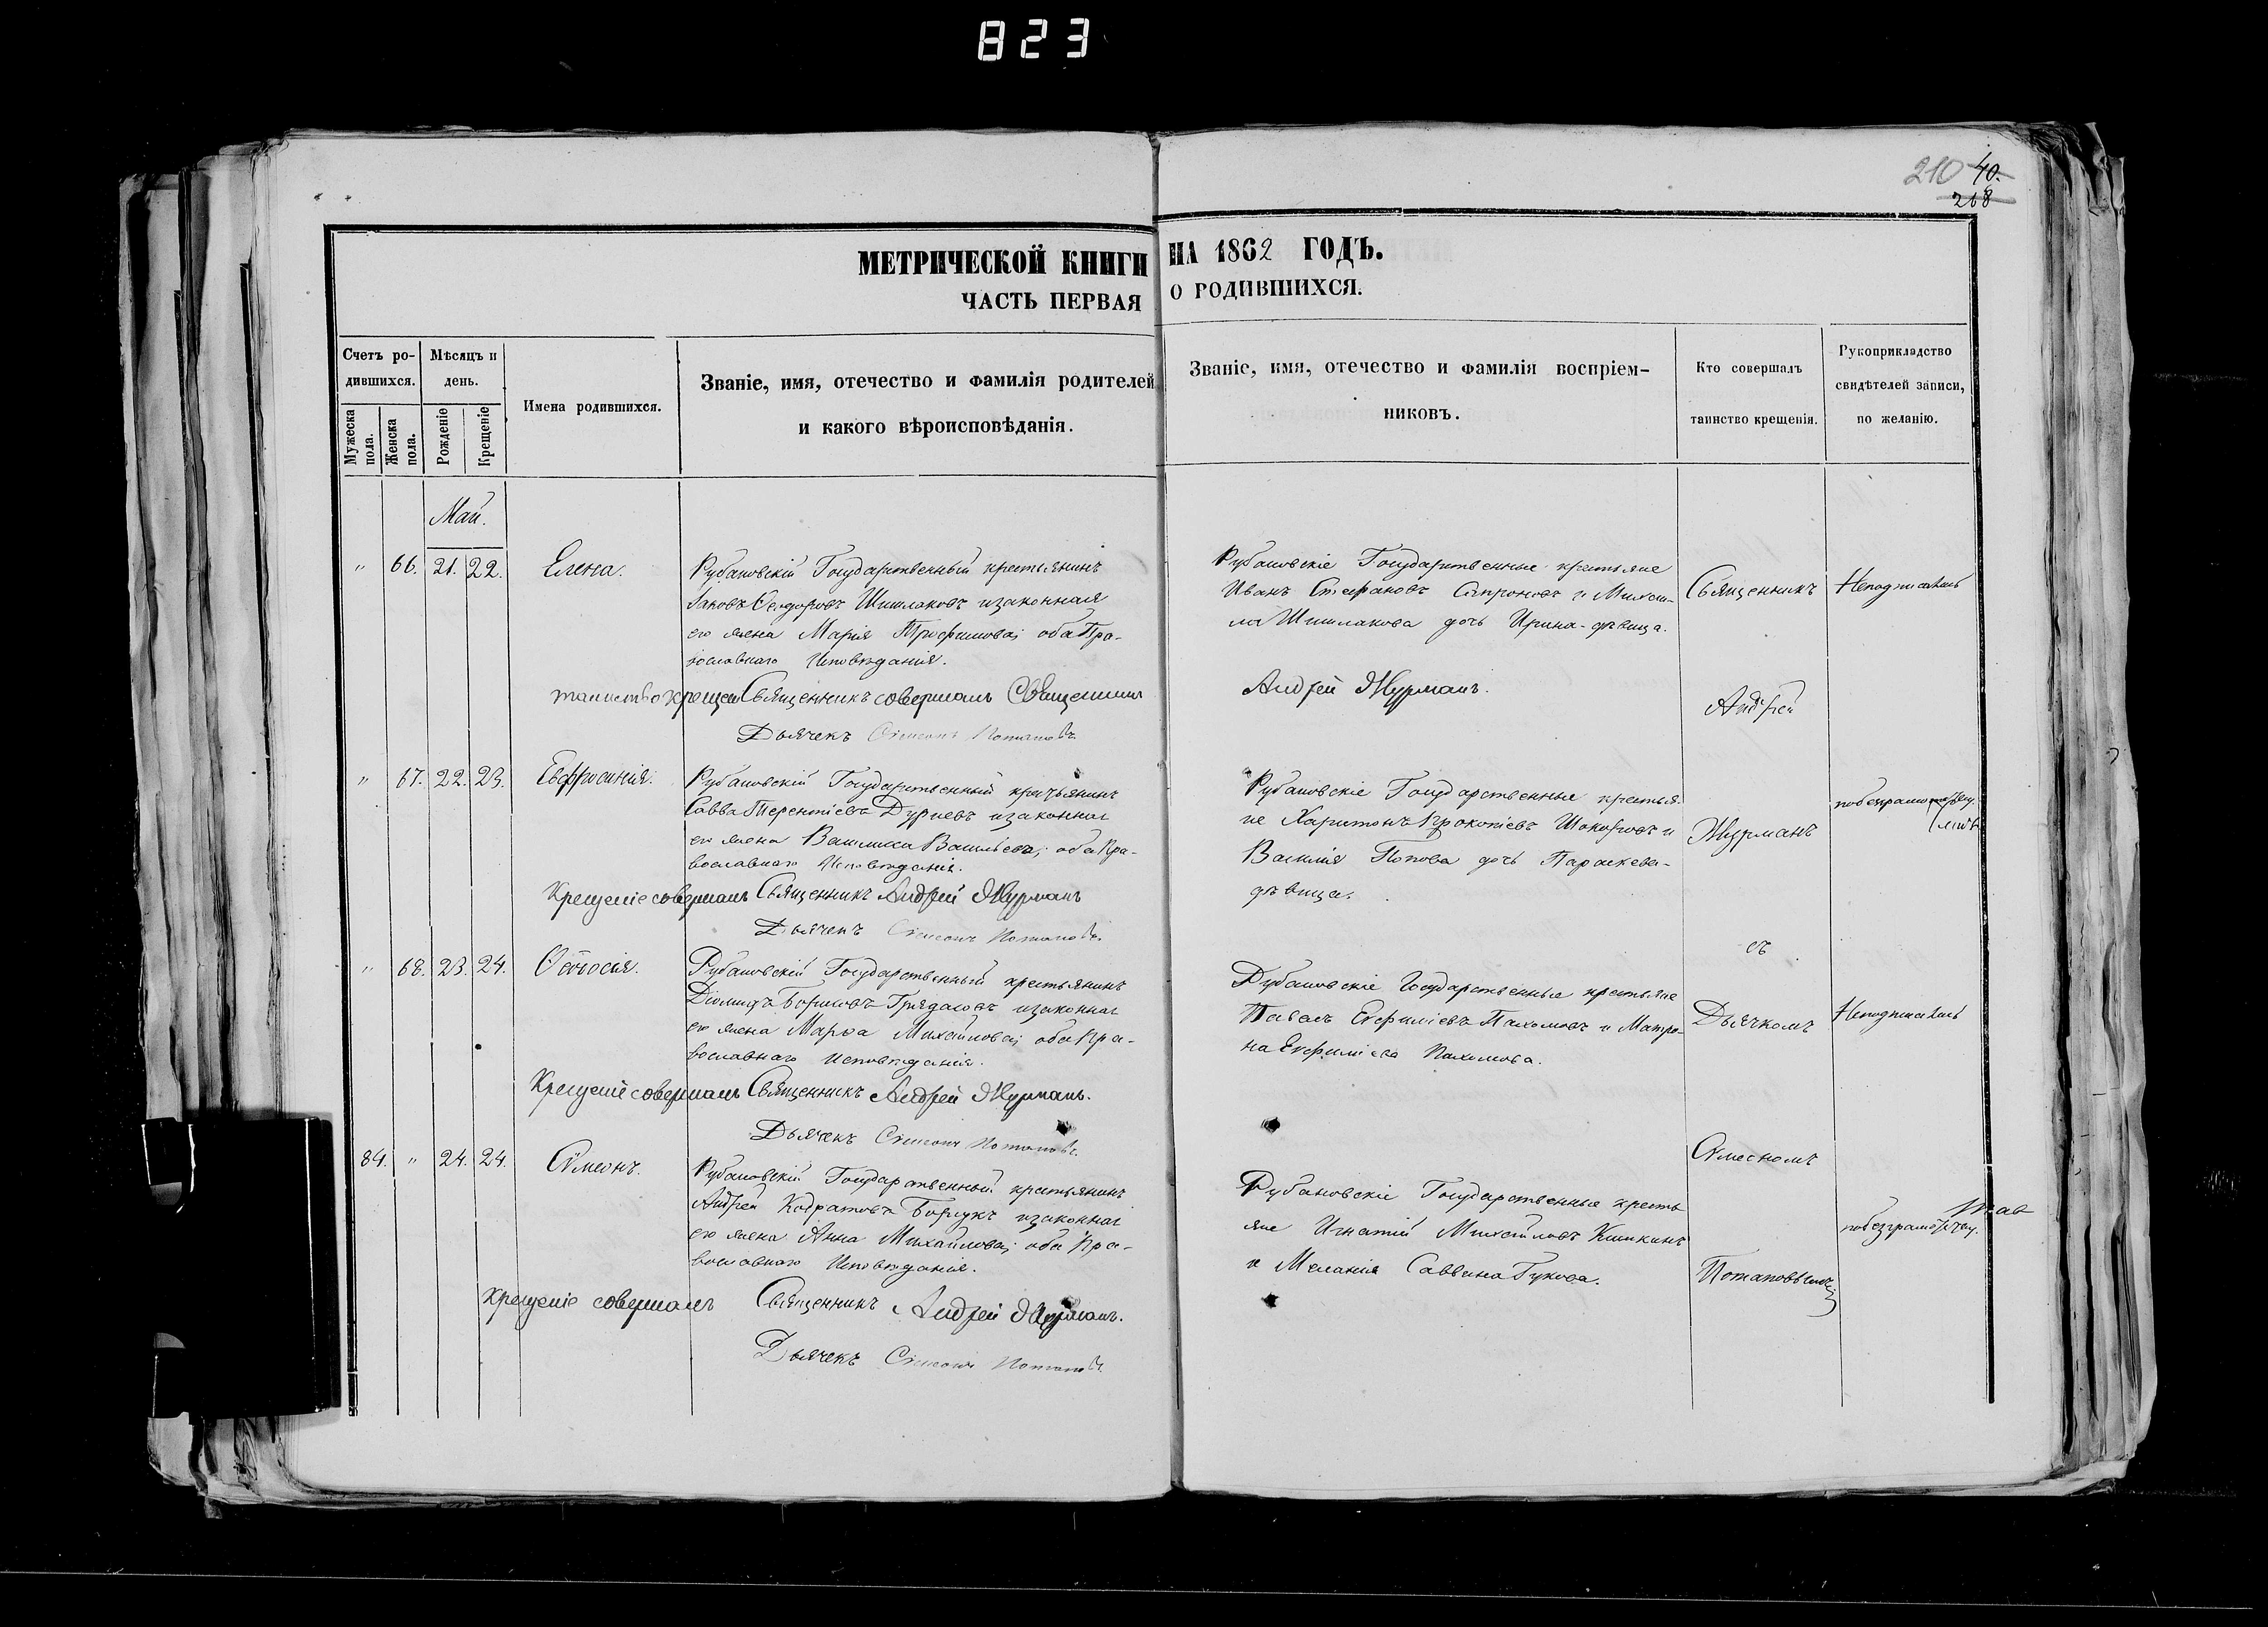 823
210 40.
218
МЕТРИЧЕСКОЙ КНИГИ НА 1862 ГОДЪ.
ЧАСТЬ ПЕРВАЯ О РОДИВШИХСЯ.
Счетъ ро-
дившихся.
Мужеска пола.
Женска пола.
Мѣсяцъ и
день.
Рожденіе
Крещеніе
Имена родившихся.
Званіе, имя, отечество и фамилія родителей
и какого вѣроисповѣданія.
Званіе, имя, отечество и фамилія воспріем-
никовъ.
Кто совершалъ
таинство крещенія.
Рукоприкладство
свидѣтелей записи,
по желанію.
Май.
" 66. 21. 22. Елена.
Рубановскій Государственный крестьянинъ
Іаковъ Ѳеодоровъ Шишлаковъ изаконная
его жена Марія Трофимова; оба Пра-
вославнаго Исповѣданія.
Рубановскіе Государственные крестьяне
Иванъ Стефановъ Сапроновъ и Михаи-
ла Шишлакова дочь Ирина-дѣвица.
Священникъ
Неподписались
таинство крещен Священникъ совершалъ Священникъ
Андрей Журманъ.
Андрей
Дьячекъ Сѵмеонъ Потаповъ
" 67. 22. 23. Евфросинія.
Рубановскій Государственный крестьянинъ
Савва Терентіевъ Дурневъ изаконная
его жена Василисса Васильева; оба Пра-
вославнаго Исповѣданія.
Рубановскіе Государственные крестья-
не Харитонъ Прокопіевъ Шокоровъ и
Василія Попова дочь Параскева-
дѣвица.
Журманъ
Крещеніе совершалъ Священникъ Андрей Журманъ
Дьячекъ Сѵмеонъ Потаповъ.
съ
" 68. 23. 24. Ѳеодосія.
Рубановскій Государственный крестьянинъ
Діомидъ Борисовъ изаконная
его жена Марѳа Михайлова; оба Пра-
вославнаго Исповѣданія.
Рубановскіе Государственные крестьяне
Павелъ Евфиміевъ Пахомовъ и Матро-
на Евфиміева Пахомова.
Дьячкомъ
Неподписались
Крещеніе совершалъ Священникъ Андрей Журманъ.
Дьячекъ Сѵмеонъ Потаповъ.
Сѵмеономъ
84. " 24. 24. Сѵмеонъ.
Рубановскій Государственный крестьянинъ
Андрей Кодратовъ изаконная
его жена Анна Михайлова; оба Пра-
вославнаго Исповѣданія.
Рубановскіе Государственные кресть-
яне Игнатій Михайловъ Кишкинъ
и Меланія Саввина Гукова.
Потаповымъ
Крещеніе совершалъ Священникъ Андрей Журманъ.
Дьячекъ Сѵмеонъ Потаповъ.